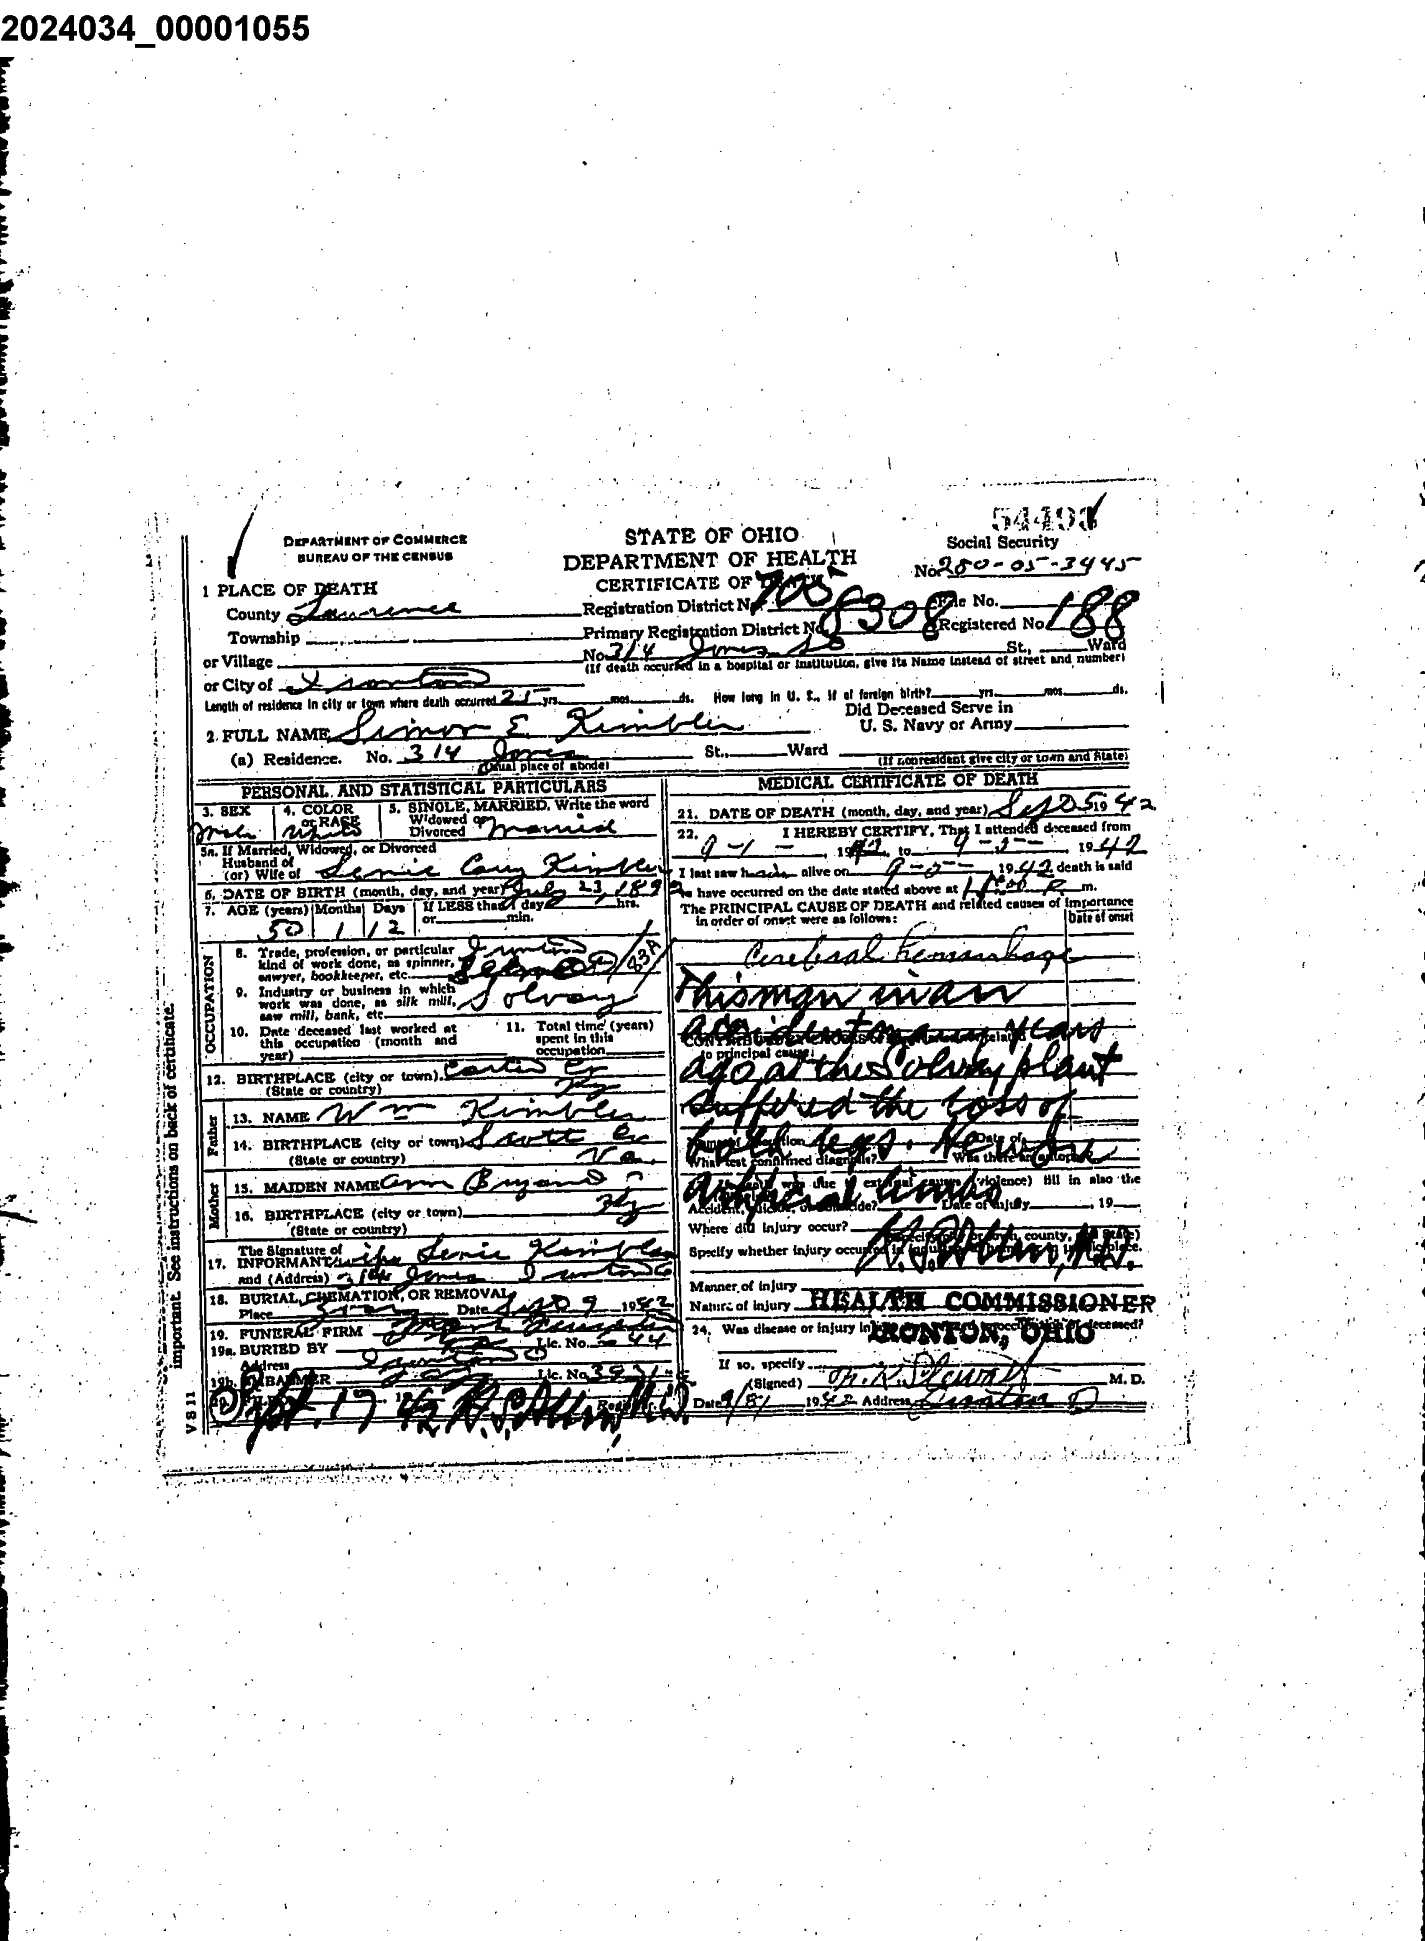 2024034_00001055
54493
DEPARTMENT OF COMMERCE
BUREAU OF THE CENSUS
STATE OF OHIO
DEPARTMENT OF HEALTH
CERTIFICATE OF DEATH
Social Security
No. 280-05-3445
1 PLACE OF DEATH
County Lawrence
Township
or Village
or City of Ironton
Registration District No. 705
File No.
Primary Registration District No. 8308
Registered No. 188
No. 314 Jones St., Ward
(If death occurred in a hospital or institution, give its Name instead of street and number)
Length of residence in city or town where death occurred 25 yrs. mos. ds. How long in U. S., if of foreign birth? yrs. mos. ds.
2. FULL NAME Simon E. Kimbler
Did Deceased Serve in
U. S. Navy or Army
(a) Residence. No. 314 Jones St., Ward
(Usual place of abode)
(If nonresident give city or town and State)
PERSONAL AND STATISTICAL PARTICULARS
3. SEX Male
4. COLOR or RACE White
5. SINGLE, MARRIED, Write the word
Widowed or
Divorced Married
5a. If Married, Widowed, or Divorced
Husband of
(or) Wife of Kimbler
6. DATE OF BIRTH (month, day, and year) July 23, 1892
7. AGE (years) Months Days If LESS than 1 day hrs.
or min.
50 1 12
OCCUPATION
8. Trade, profession, or particular
kind of work done, as spinner,
sawyer, bookkeeper, etc. Ironton
9. Industry or business in which
work was done, as silk mill,
saw mill, bank, etc. Solvay
10. Date deceased last worked at
this occupation (month and
year)
11. Total time (years)
spent in this
occupation
12. BIRTHPLACE (city or town) Carter Co
(State or country) Ky
Father
13. NAME Wm Kimbler
14. BIRTHPLACE (city or town) Scott Co
(State or country) Va.
Mother
15. MAIDEN NAME Ann Bryand
16. BIRTHPLACE (city or town)
(State or country) Ky
17. The Signature of
INFORMANT wife Kimbler
and (Address) 314 Jones Ironton O
18. BURIAL, CREMATION, OR REMOVAL
Place Date Sept 9 1942
19. FUNERAL FIRM
19a. BURIED BY Lic. No. 44
Address Ironton O
19b. EMBALMER Lic. No. 3971
Sept. 17 42 H.S. Allen, M.D.
V S 11
important. See instructions on back of certificate.
MEDICAL CERTIFICATE OF DEATH
21. DATE OF DEATH (month, day, and year) Sept 5 1942
22. I HEREBY CERTIFY, That I attended deceased from
9-1-, 1942, to 9-5-, 1942
I last saw him alive on 9-5-, 1942 death is said
to have occurred on the date stated above at P. m.
The PRINCIPAL CAUSE OF DEATH and related causes of importance
in order of onset were as follows:
Date of onset
Cerebral hemorrhage
This man in an
accident many years
ago at the Solvay plant
suffered the loss of
both legs. He wore
artificial limbs
to principal cause:
What test confirmed diagnosis? Was there an autopsy
Date of injury , 19
Where did injury occur?
H.S. Allen, M.D.
Specify whether injury occurred in industry, in home, or in public place.
Manner of injury
Nature of injury
HEALTH COMMISSIONER
IRONTON, OHIO
24. Was disease or injury in any way related to occupation of deceased?
If so, specify
(Signed) M. D.
Date 9/8/ 1942 Address Ironton O